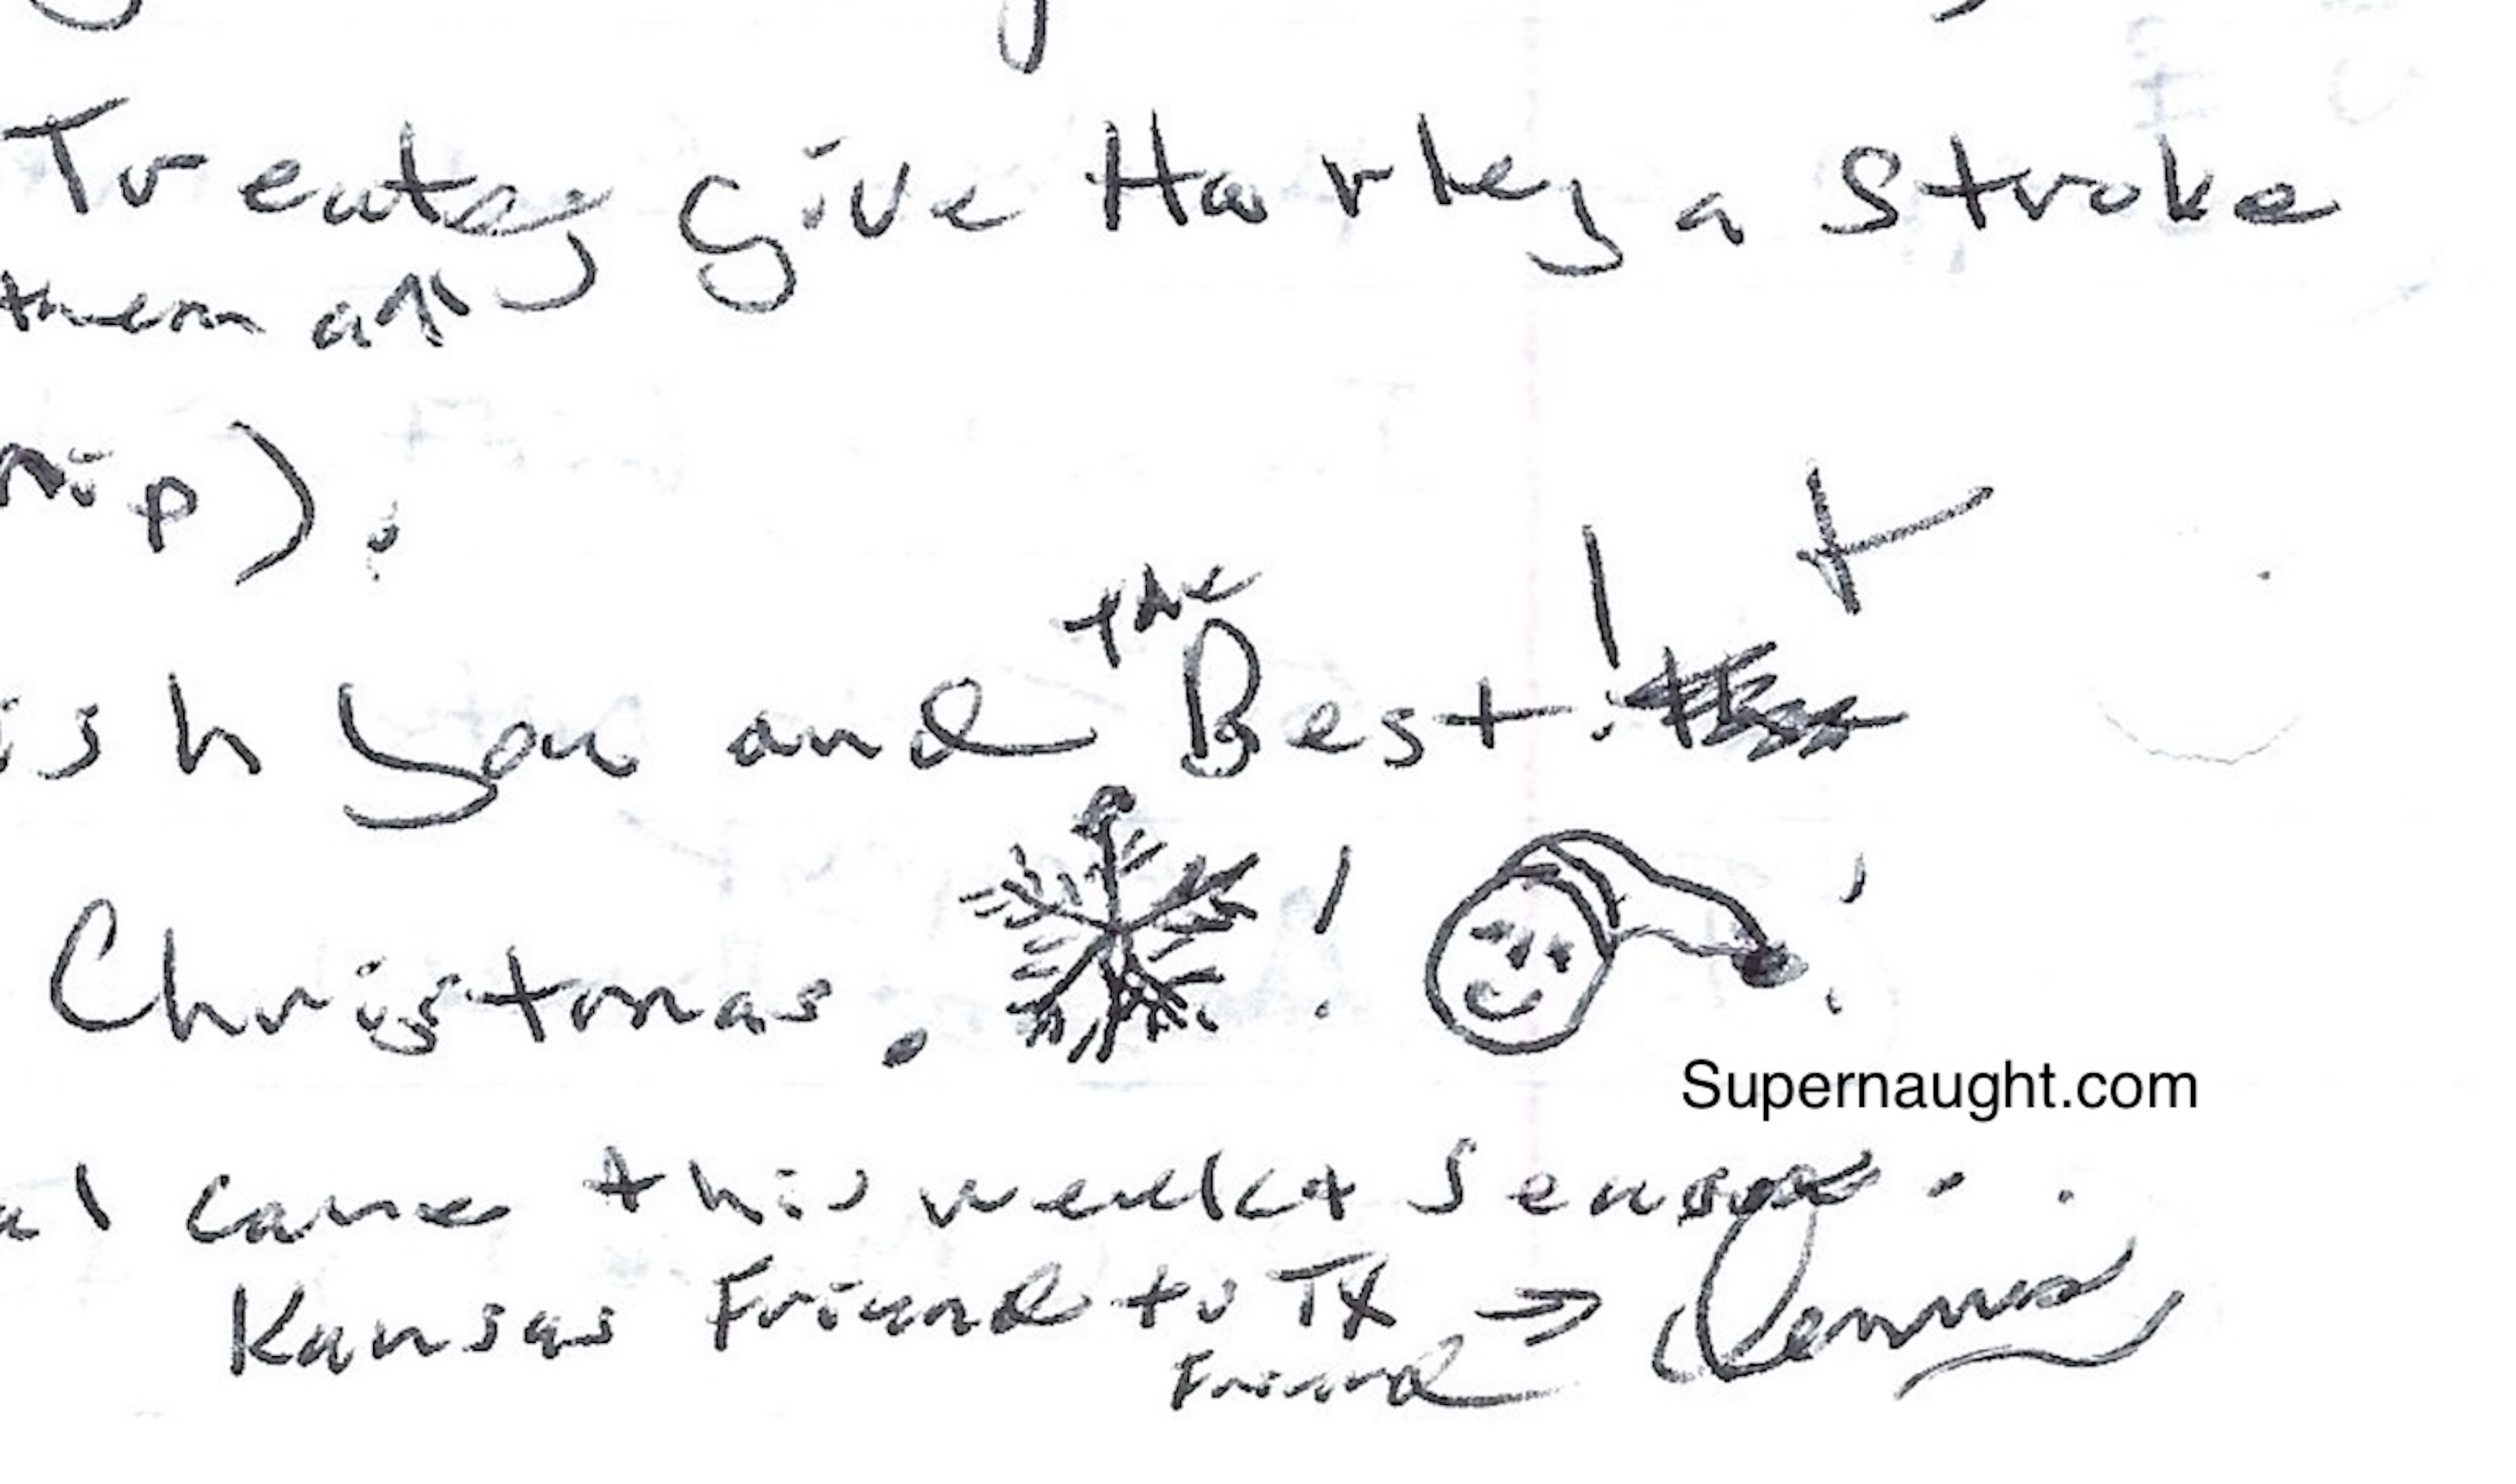 Treats, give Harley a stroke
them all
nip).
ish you and the Best! +
Christmas. ! !
Supernaught.com
al came this week & season.
Kansas Friend to TX → Dennis
Friend